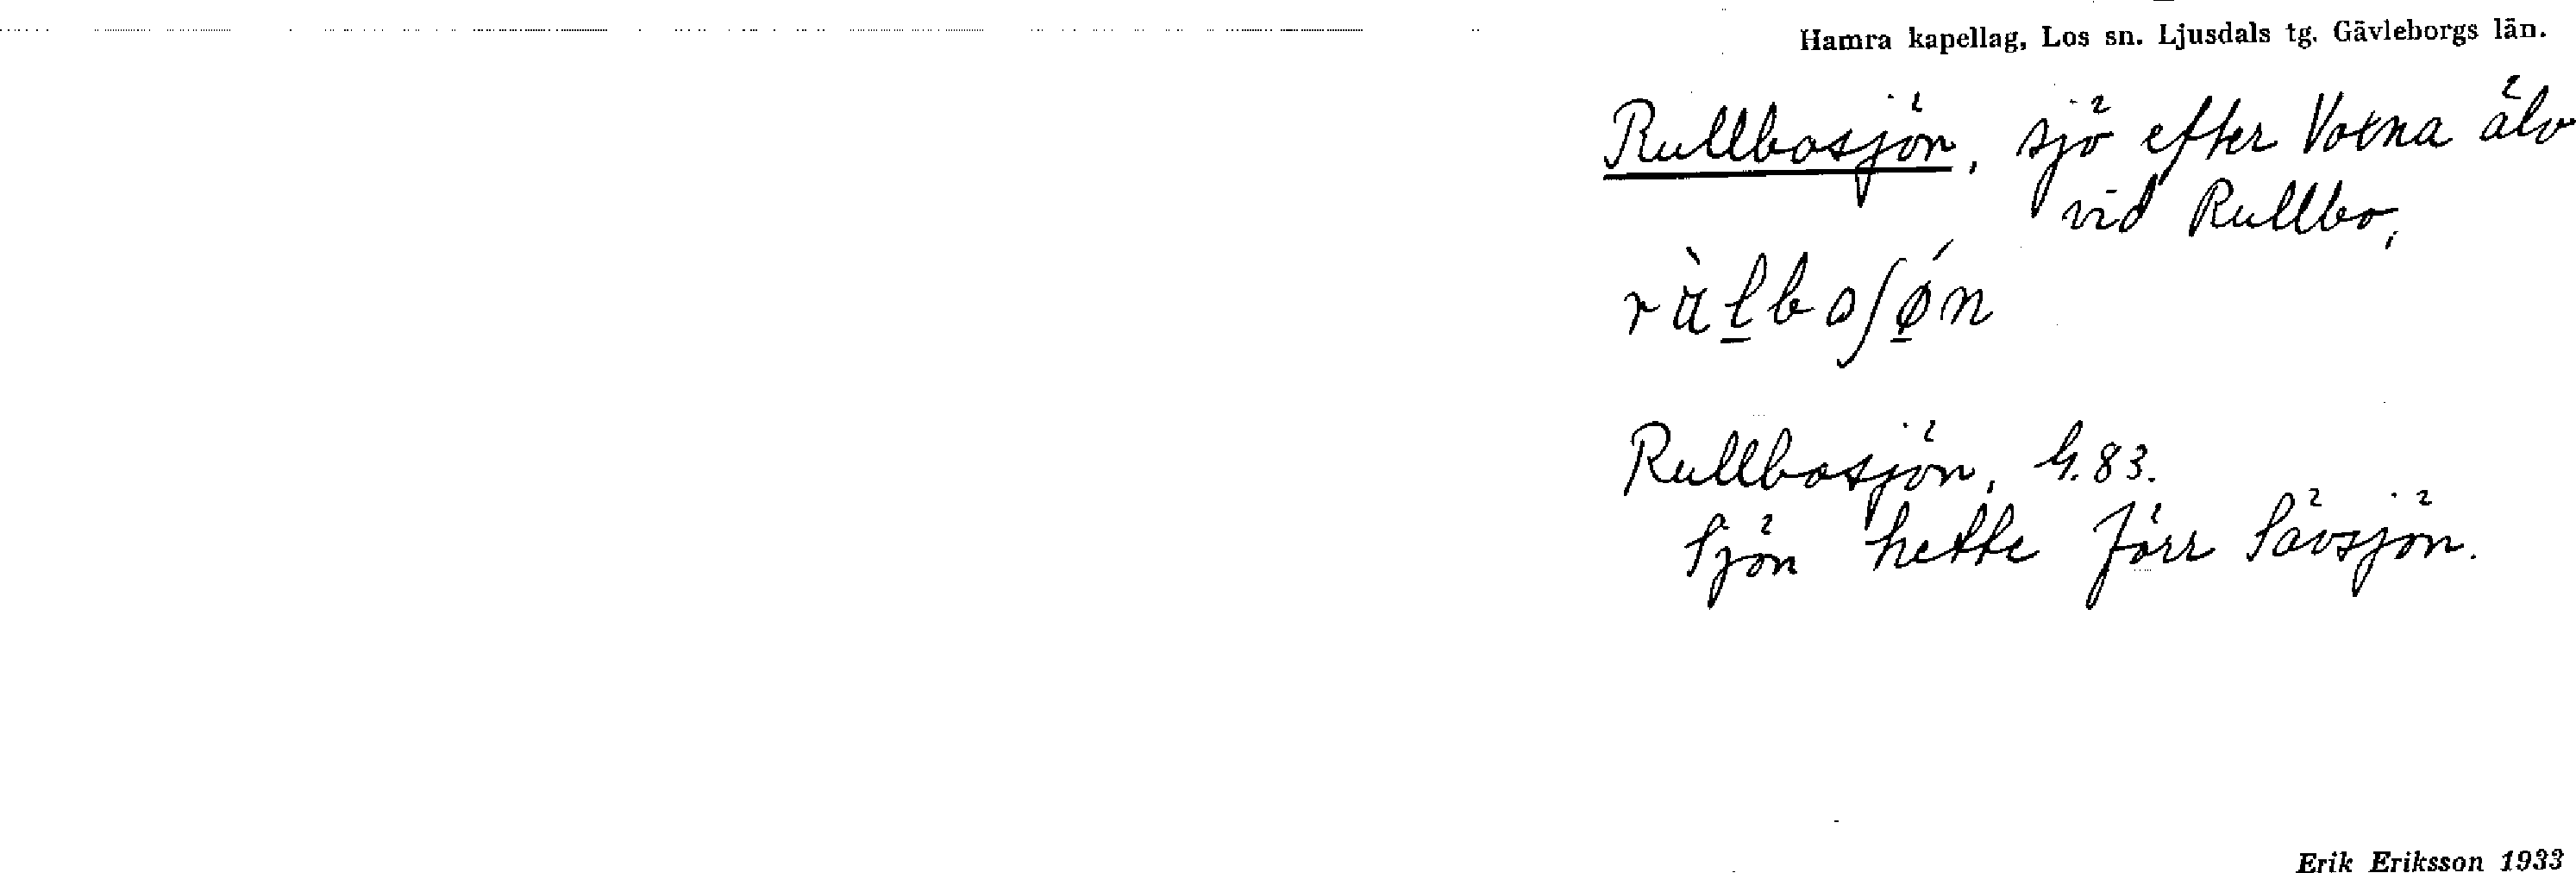 Hamra kapellag, Los sn. Ljusdals tg. Gävleborgs län.
Rullbosjön, sjö efter Voxna älv
vid Rullbo,
Rullbosjön, G. 83.
Sjön hette förr Sävsjön.
Erik Eriksson 1933